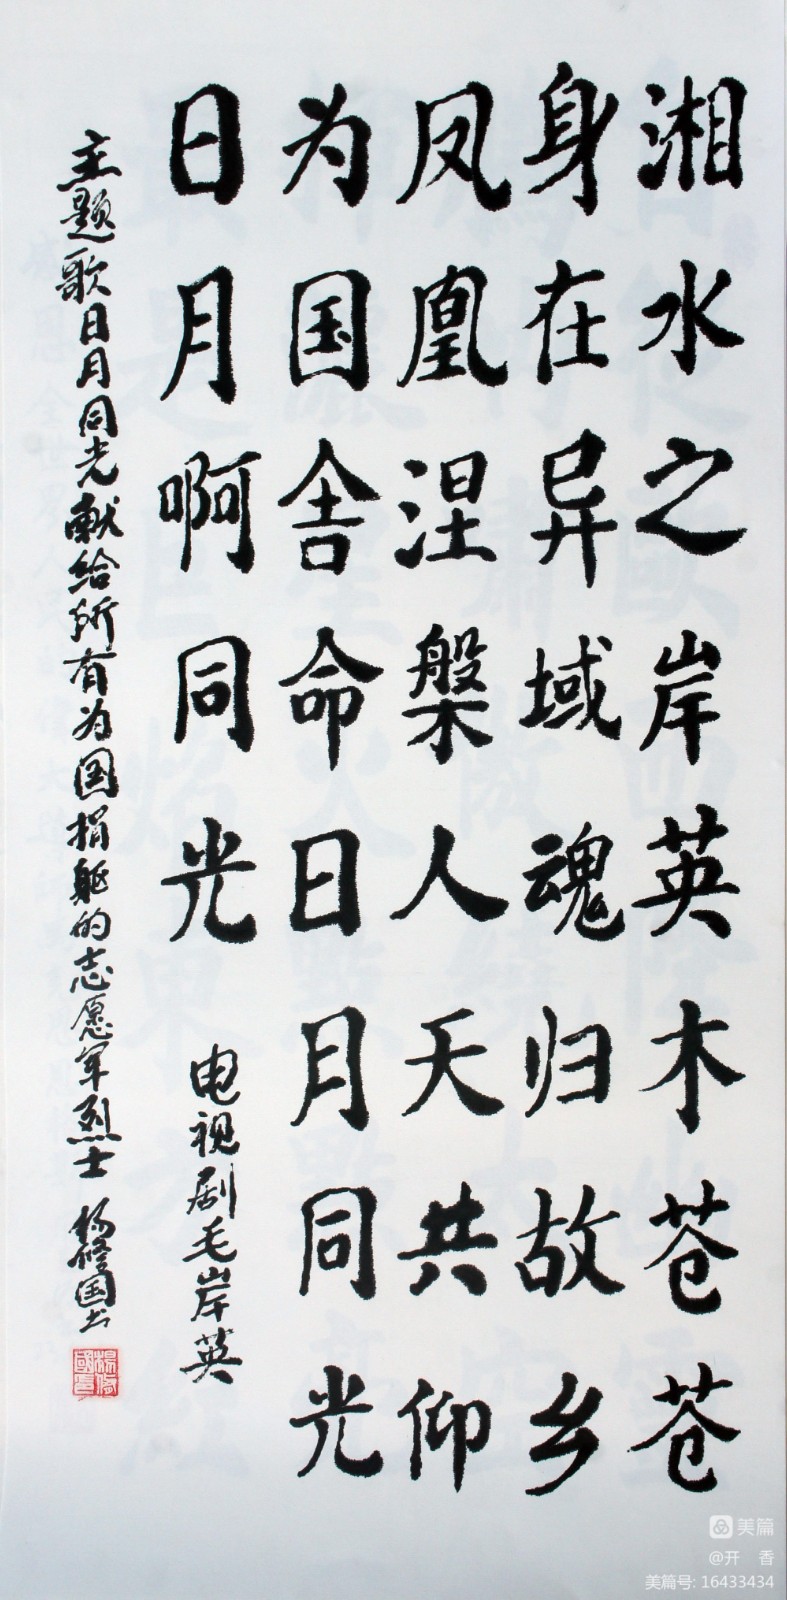 湘水之岸英木苍苍
身在异域魂归故乡
凤凰涅槃人天共仰
为国舍命日月同光
日月啊同光
电视剧毛岸英
主题歌日月同光献给所有为国捐躯的志愿军烈士 杨修国书
美篇
@开 香
美篇号: 16433434